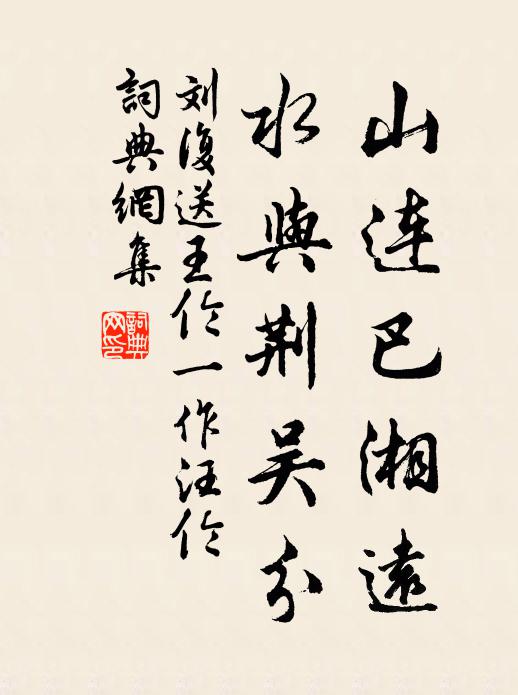 山連巴湘遠
水與荆吴分
刘復送王伦一作汪伦
詞典網集
詞典
网印